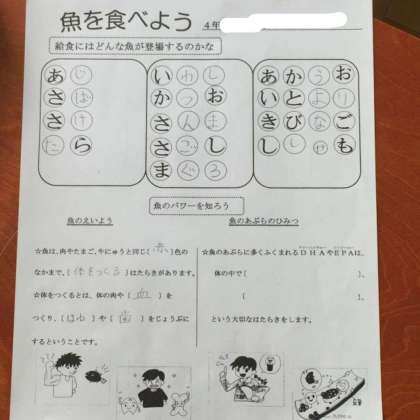 魚を食べよう 4年
給食にはどんな魚が登場するのかな
あじ
さば
さけ
たら
いわし
かつお
さんま
さごし
まぐろ
あかうお
いとより
きびなご
ししゃも
魚のパワーを知ろう
魚のえいよう
☆魚は、肉やたまご、牛にゅうと同じ(赤)色の
なかまで、(体をつくる)はたらきがあります。
☆体をつくるとは、体の肉や(血)を
つくり、(ほね)や(歯)をじょうぶに
するということです。
魚のあぶらのひみつ
☆魚のあぶらに多くふくまれるDHAやEPAは、
体の中で( )、
( )、
という大切なはたらきをします。